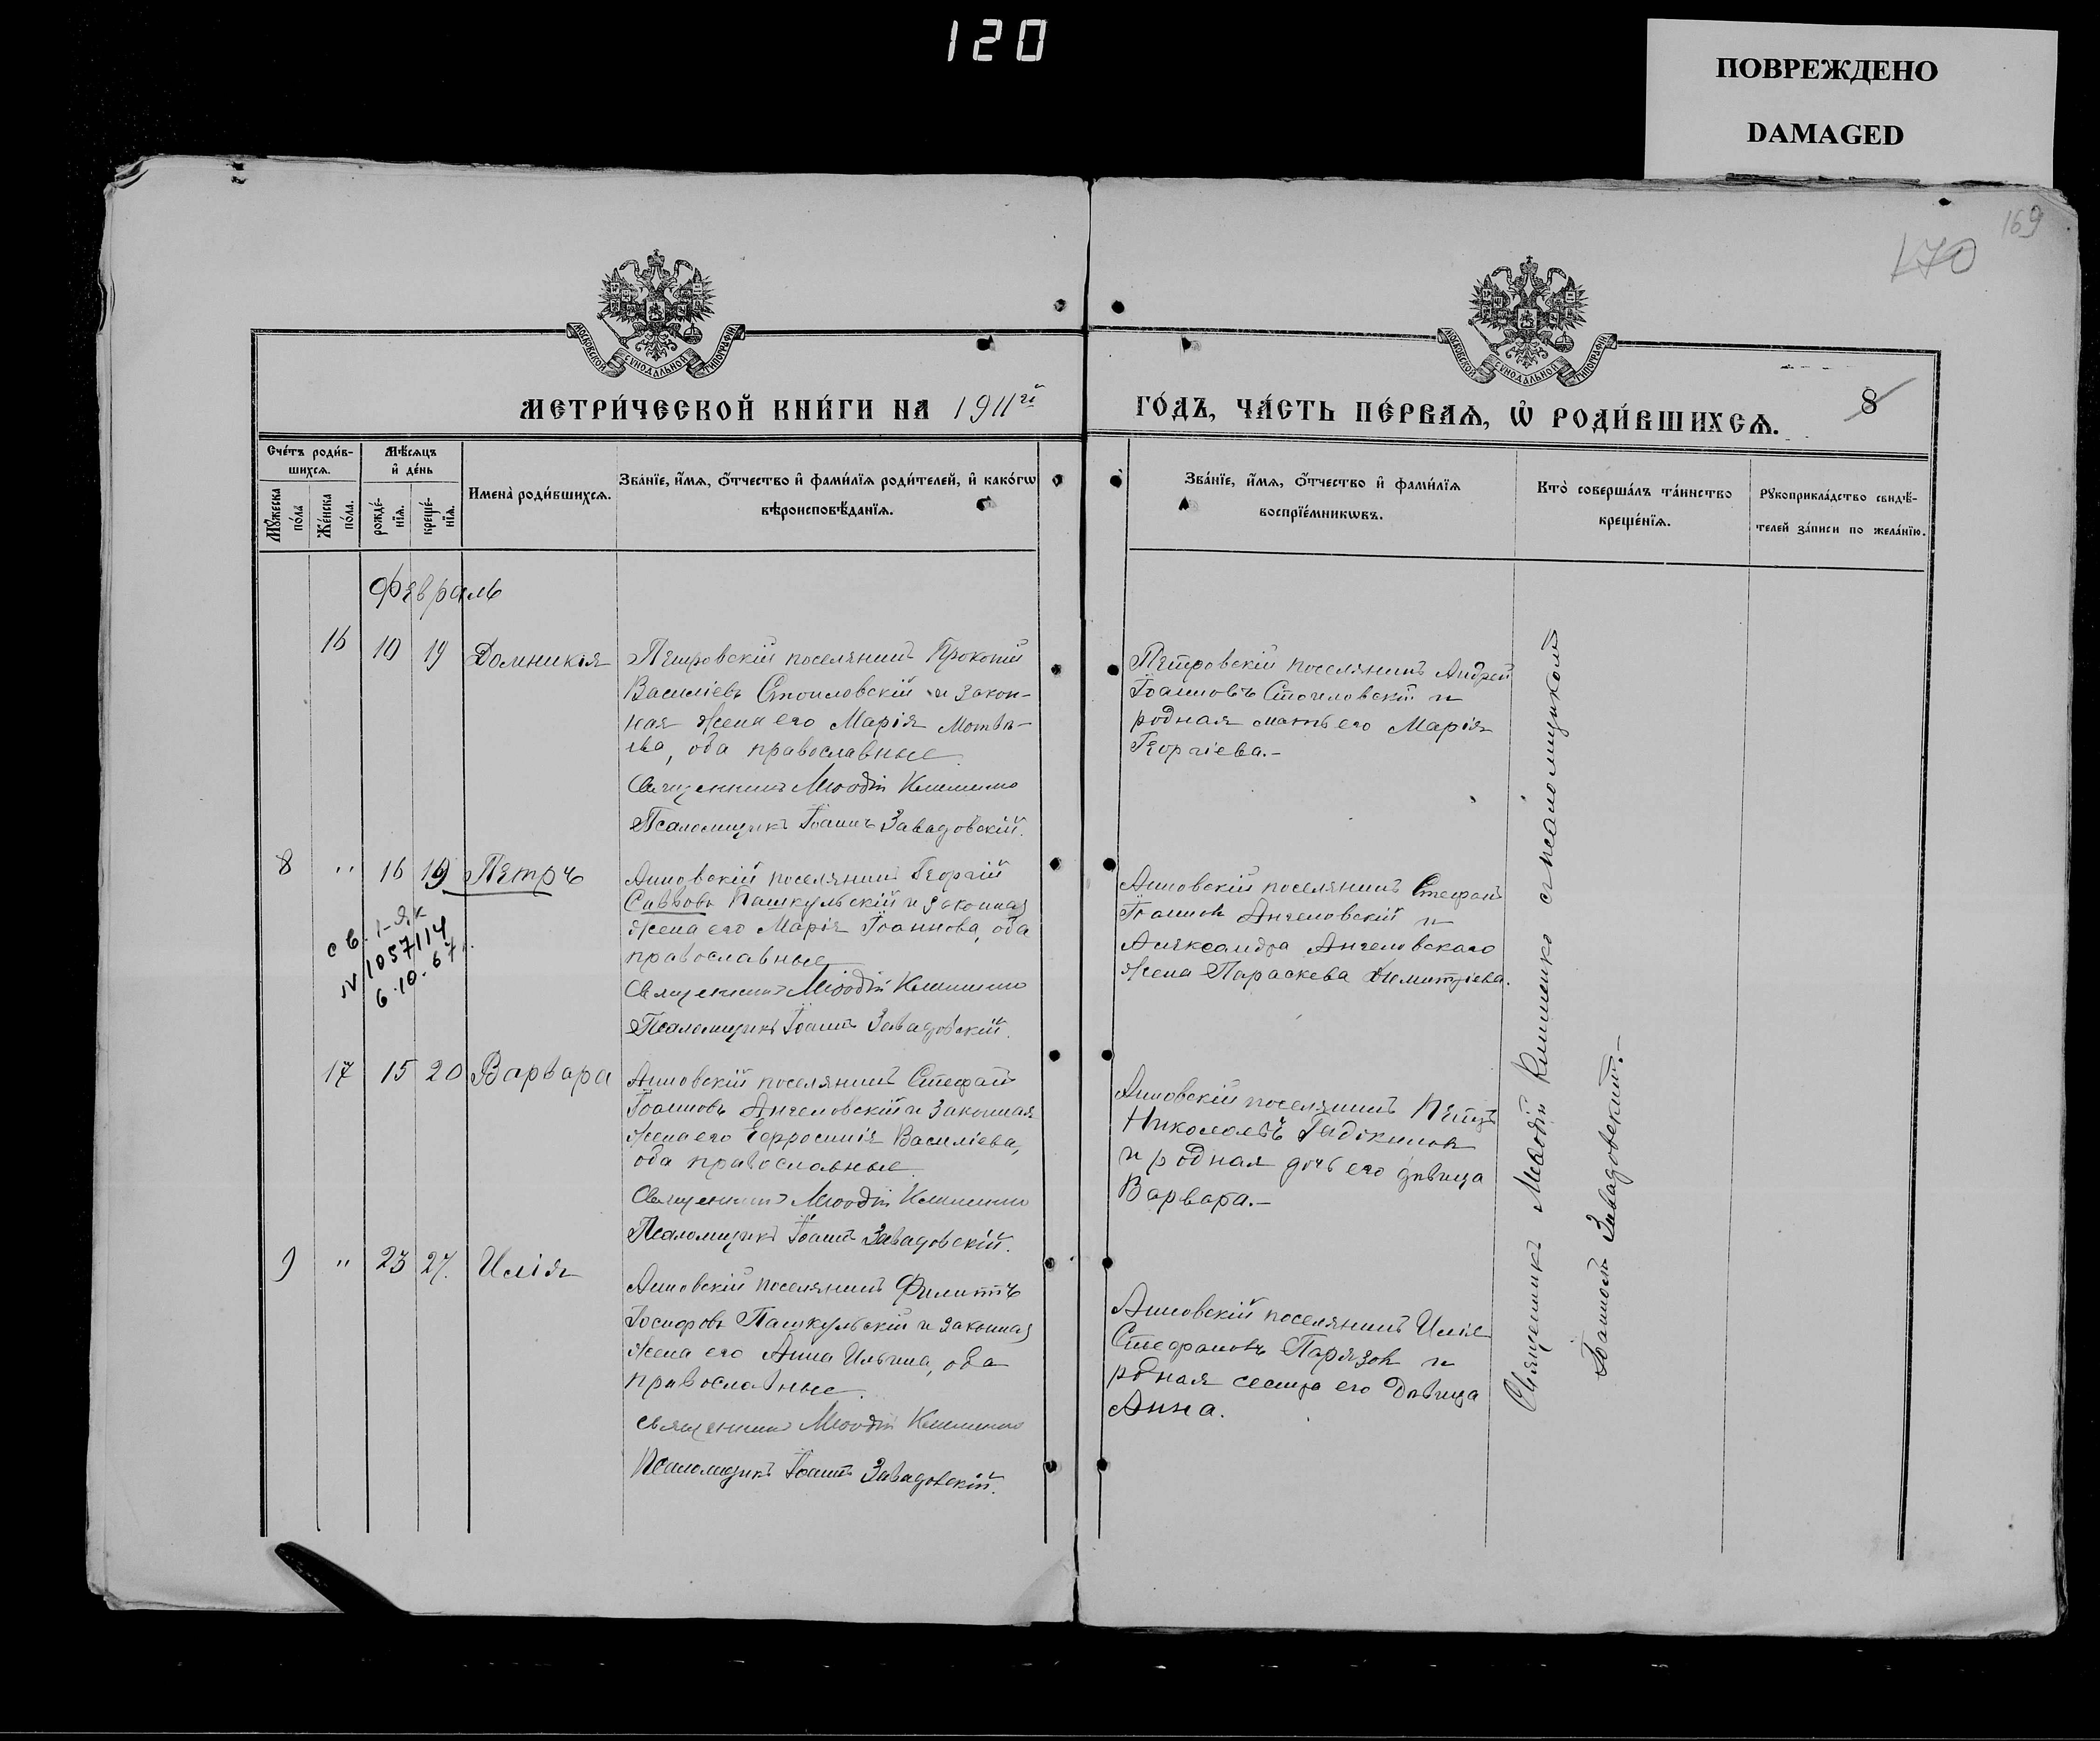 120
ПОВРЕЖДЕНО
DAMAGED
169
170
МОСКОВСКОЙ СУНОДАЛЬНОЙ ТИПОГРАФІИ
МОСКОВСКОЙ СУНОДАЛЬНОЙ ТИПОГРАФІИ
МЕТРИ́ЧЕСКОЙ КНИ́ГИ НА 1911й
ГО́ДЪ, ЧА́СТЬ ПЕ́РВАѦ, Ѡ҆ РОДИ́ВШИХСѦ.
8
Сче́тъ роди́в-
шихсѧ.
Мѣ́сѧцъ
и҆ де́нь
Мꙋ́жеска
по́ла
Же́нска
по́ла.
рожде́-
нїѧ.
креще́-
нїѧ.
Имена̀ роди́вшихсѧ.
Зва́нїе, и҆́мѧ, ѻ҆́тчество и҆ фами́лїѧ роди́телей, и҆ како́гѡ
вѣроисповѣ́данїѧ.
Зва́нїе, и҆́мѧ, ѻ҆́тчество и҆ фами́лїѧ
воспрїе́мникѡвъ.
Кто̀ соверша́лъ та́инство
креще́нїѧ.
Рꙋкоприкла́дство свидѣ́-
телей за́писи по жела́нїю.
Февраль
16 10 19 Домникія
Петровскій поселянинъ Прокопій
Василіевъ Стоиловскій и закон-
ная жена его Марія Матвѣ-
ева, оба православные
Священникъ Меѳодій Клименко
Псаломщикъ Іоаннъ Завадовскій.
Петровскій поселянинъ Андрей
Іоанновъ Стоиловскій и
родная мать его Марія
Георгіева.-
8 " 16 19 Петръ
Анновскій поселянинъ Георгій
Савовъ Пашкульскій и законная
жена его Марія Іоаннова, оба
православные
Священникъ Меѳодій Клименко
Псаломщикъ Іоаннъ Завадовскій.
св. I-ЯК
N 1057114
6.10.67
Анновскій поселянинъ Стефанъ
Іоанновъ Ангеловскій и
Александра Ангеловскаго
жена Параскева Димитріева.
17 15 20 Варвара
Анновскій поселянинъ Стефанъ
Іоанновъ Ангеловскій и законная
жена его Евфросинія Василіева,
оба православные.
Священникъ Меѳодій Клименко
Псаломщикъ Іоаннъ Завадовскій.
Анновскій поселянинъ Петръ
Николаевъ
и родная дочь его дѣвица
Варвара.-
9 " 23 27. Илія
Анновскій поселянинъ Филиппъ
Іосифовъ Пашкульскій и законная
жена его Анна Ильина, оба
православные.
Священникъ Меѳодій Клименко
Псаломщикъ Іоаннъ Завадовскій.
Анновскій поселянинъ Илія
Стефановъ и
родная сестра его дѣвица
Анна.
Священникъ Меѳодій Клименко съ псаломщикомъ
Іоанномъ Завадовскимъ.-